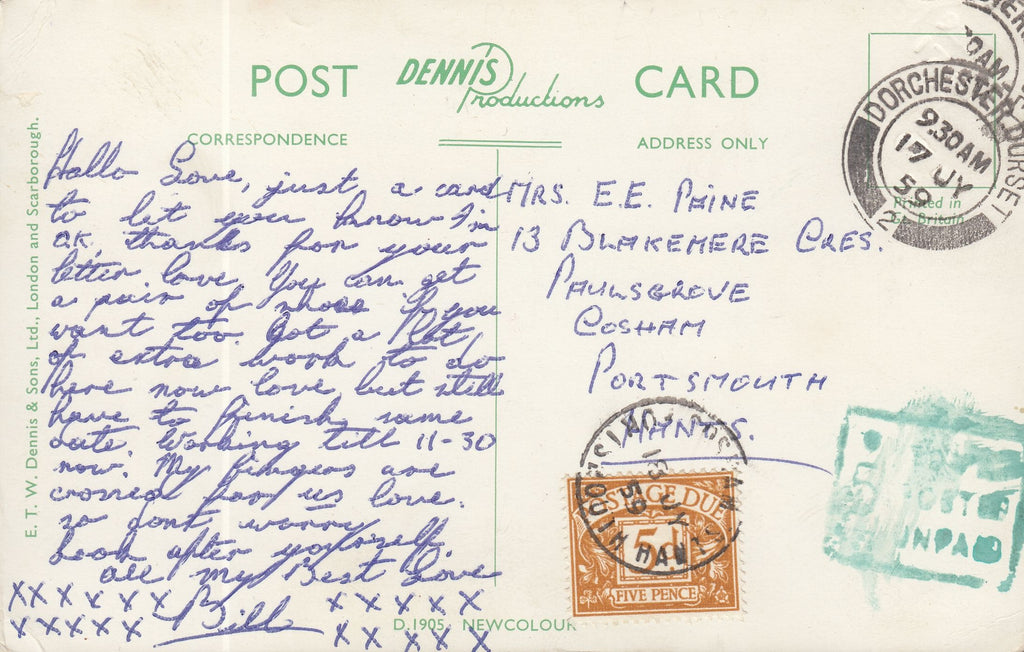 POST DENNIS Productions CARD
CORRESPONDENCE
ADDRESS ONLY
E. T. W. Dennis & Sons, Ltd., London and Scarborough.
Hallo Love, just a card
to let you know I'm
O.K, thanks for your
letter love, You can get
a pair of shoes if you
want too. Got a lot
of extra work to do
here now love but still
have to finish same
date. Working till 11-30
now. My fingers are
crossed for us love.
so dont worry
look after yourself.
all my Best Love
Bill
XXXXXXX XXXXXX
XXXXXX XXXXX
MRS. E.E. PAINE
13 BLAKEMERE CRES.
PAULSGROVE
COSHAM
PORTSMOUTH
HANTS.
Printed in
Gt. Britain
DORCHESTER DORSET
9.30AM
17 JY
59
2
30AM
COSHAM PORTSMOUTH HANTS
18 JY
59
POSTAGE DUE
5d
FIVE PENCE
POSTED
UNPAID
D.1905 NEWCOLOUR